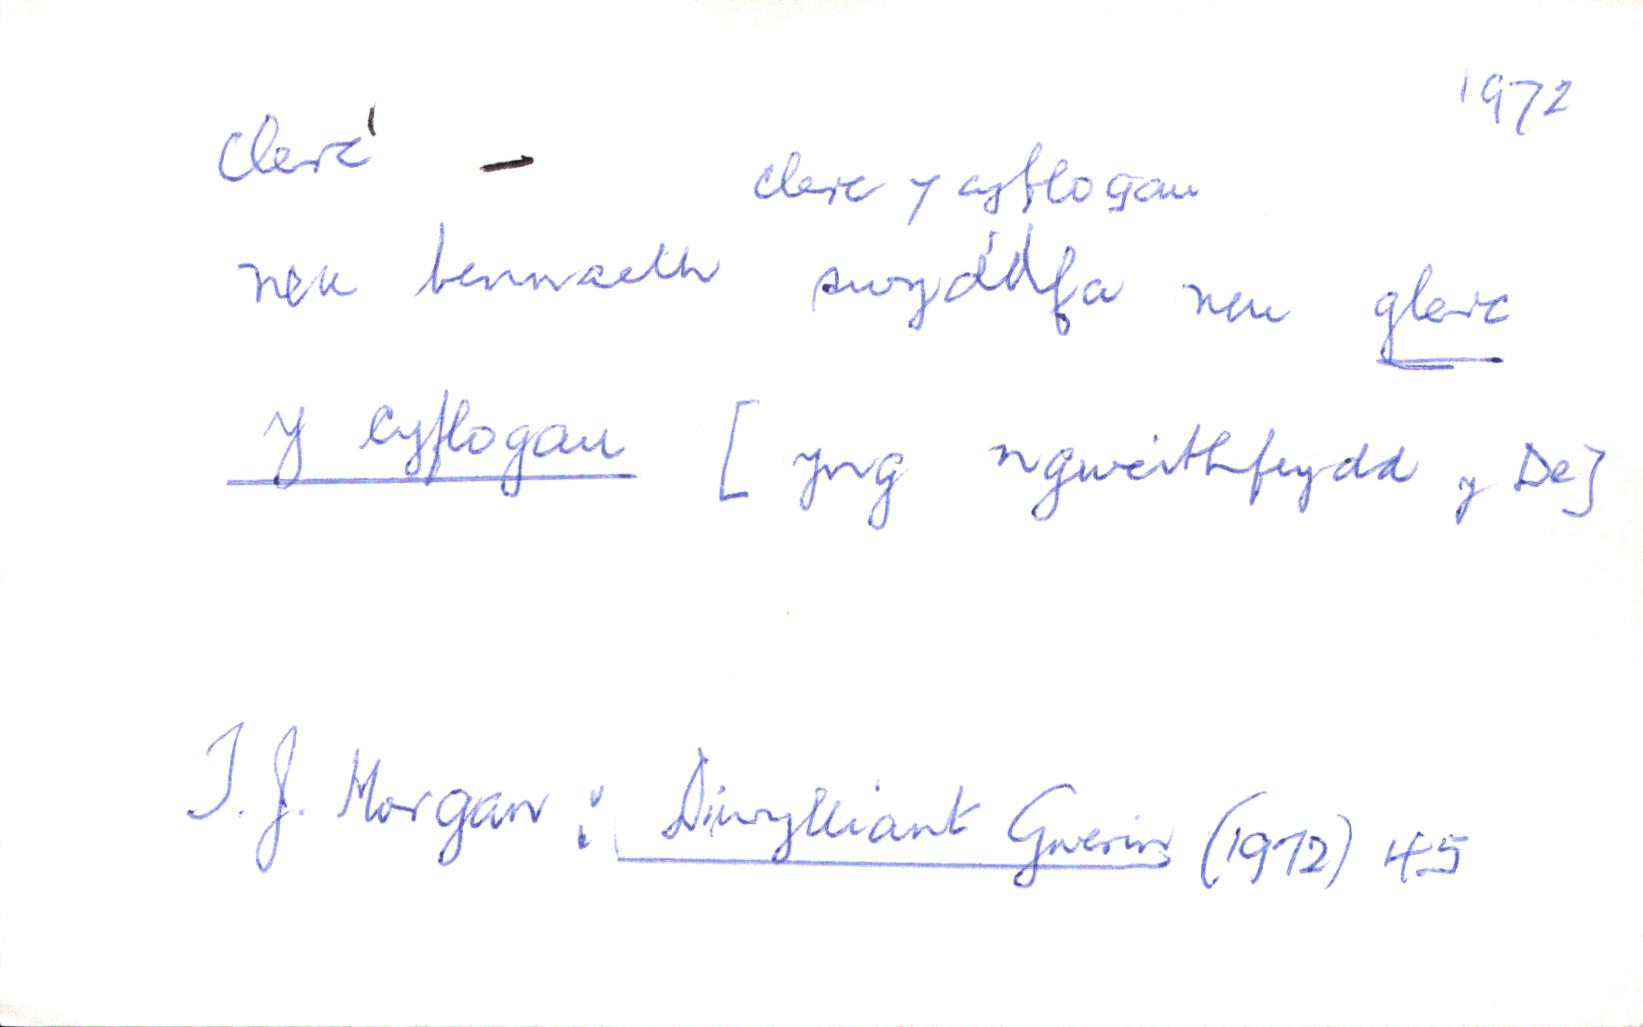 1972
clerc¹ – clerc y cyflogau
neu bennaeth swyddfa neu glerc
y cyflogau [yng ngweithfeydd y De]
T. J. Morgan: Diwylliant Gwerin (1972) 45